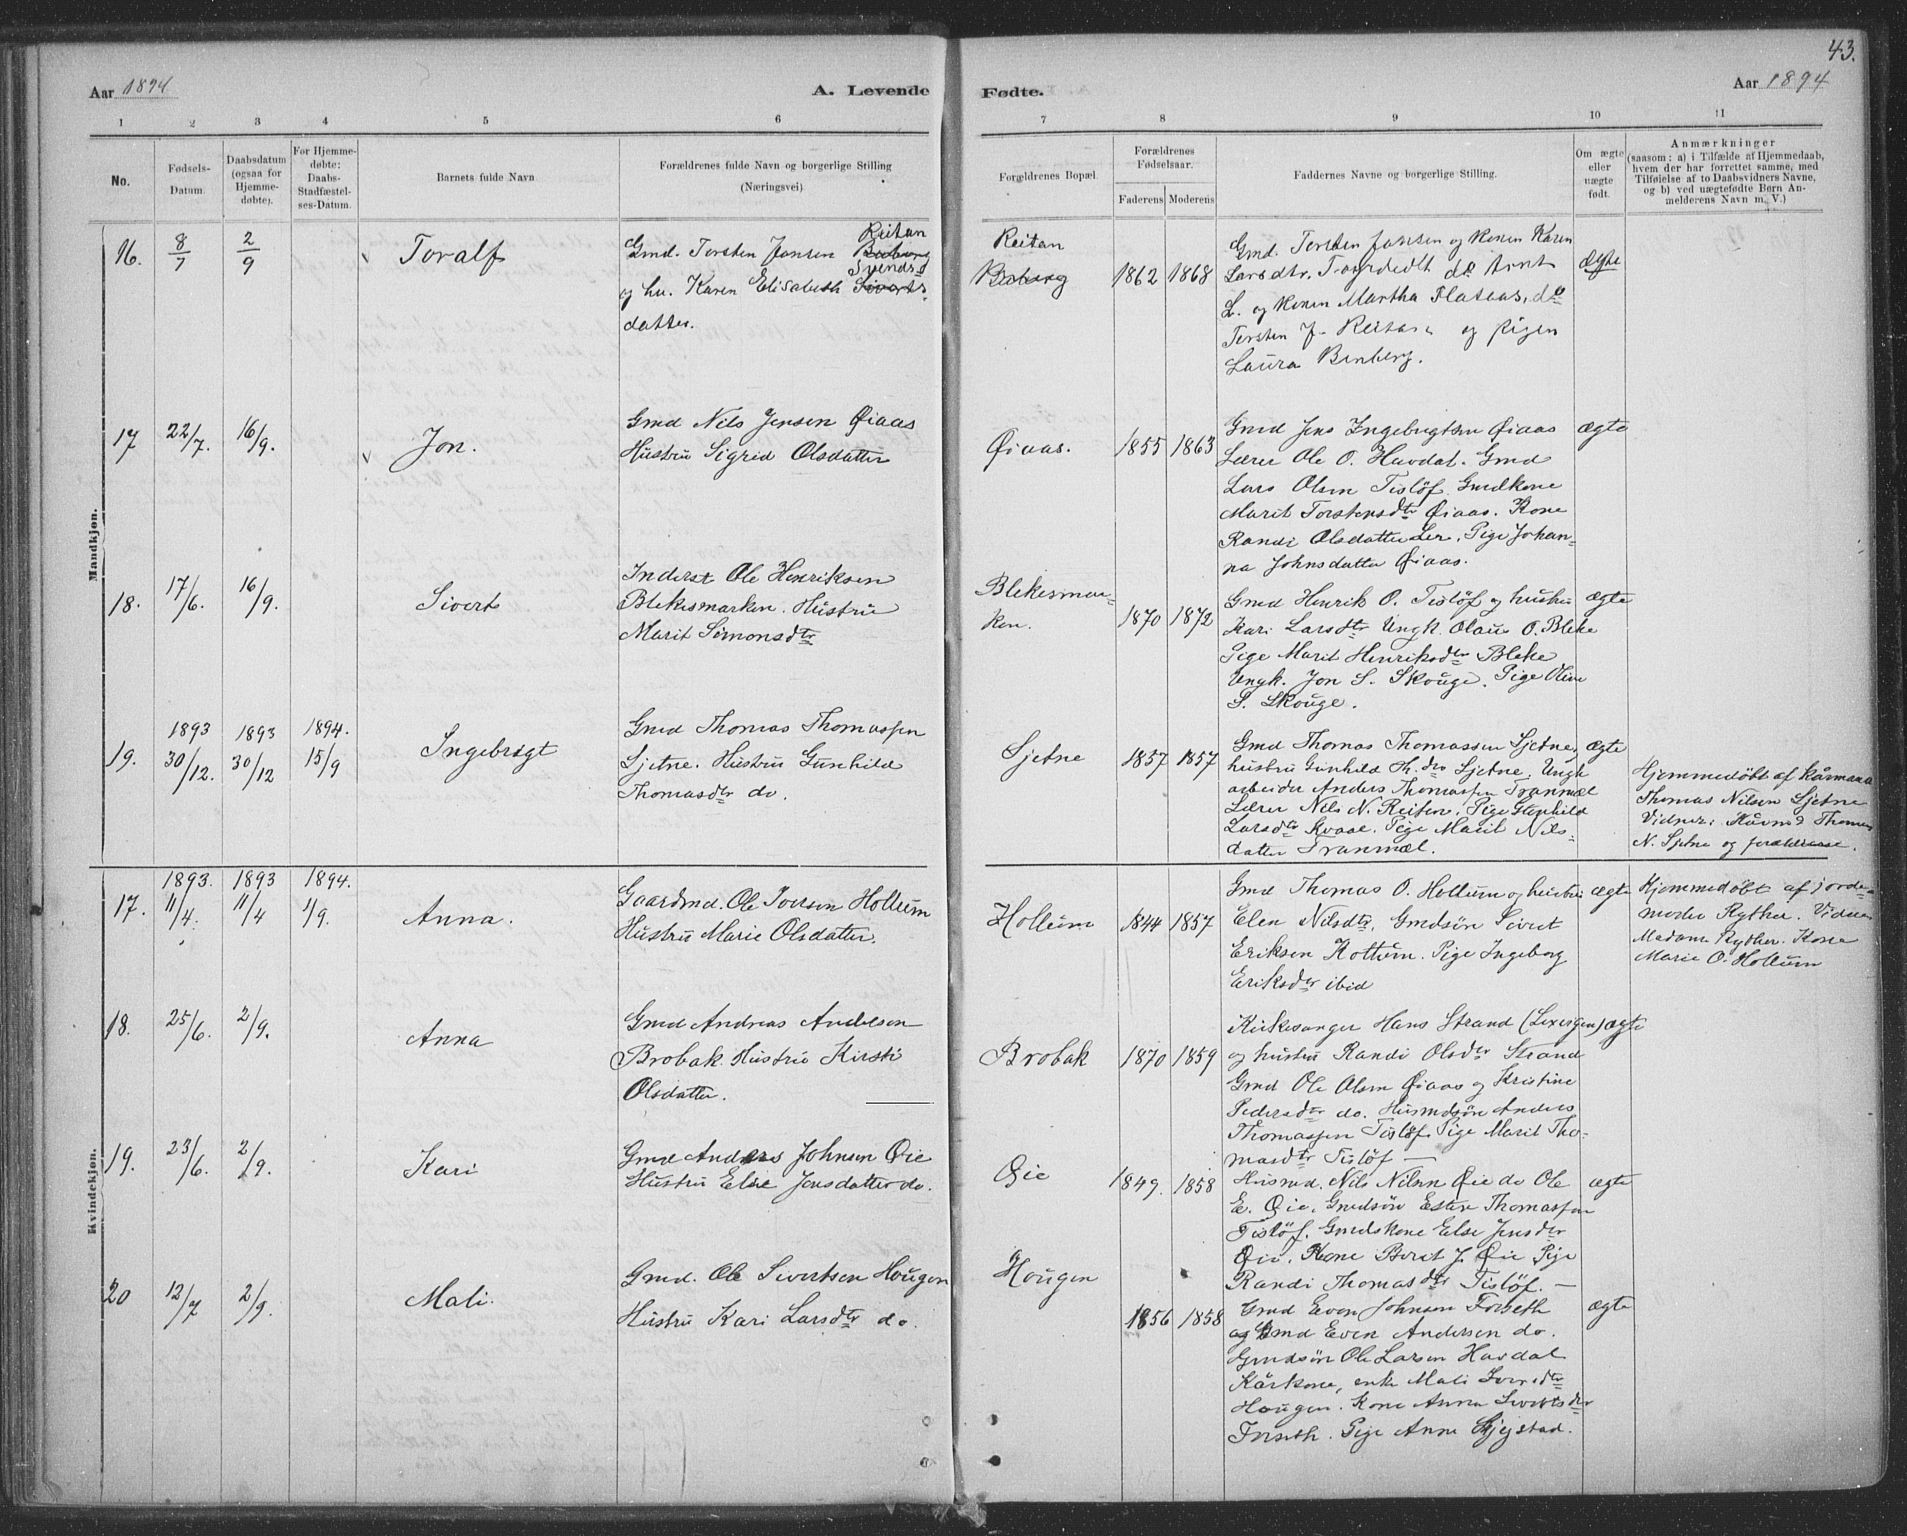 43.
Aar 1894
A. Levende
Fødte.
Aar 1894
1 2 3 4 5 6 7 8 9 10 11
No.
Fødsels-
Datum.
Daabsdatum
(ogsaa for
Hjemme-
døbte).
For Hjemme-
døbte:
Daabs-
Stadfæstel-
ses-Datum.
Barnets fulde Navn
Forældrenes fulde Navn og borgerlige Stilling
(Næringsvei)
Forældrenes Bopæl.
Forældrenes
Fødselsaar.
Faderens Moderens
Faddernes Navne og borgerlige Stilling.
Om ægte
eller
uægte
født.
Anmærkninger
(saasom: a) i Tilfælde af Hjemmedaab,
hvem der har forrettet samme, med
Tilføielse af to Daabsvidners Navne,
og b) ved uægtefødte Børn An-
melderens Navn m. V.)
Mandkjøn.
16. 8/7 2/9 Toralf
Reitan
Gmd. Torsten Jonsen
Svends
og hu. Karen Elisabeth Siverts-
datter.
Reitan
1862 1868
Gmd. Torsten Jonsen og Konen Karen
Larsdtr. do Arnt
L. og Konen Martha Flataas, do
Torsten J. Reitan og pigen
Laura Benberg.
ægte
17 22/7. 16/9. Jon.
Gmd Nils Jensen Øiaas
Hustru Sigrid Olsdatter
Øiaas. 1855 1863
Gmd Jens Ingebrigtsen Øiaas
Lærer Ole O. Havdal. Gmd
Lars Olsen Tisløf. Gmdkone
Marit Torstensdtr Øiaas. Kone
Randi Olsdatter Ler. Pige Johan-
na Johnsdatter Øiaas.
ægte
18. 17/6. 16/9. Sivert
Inderst Ole Henriksen
Blekesmarken. Hustru
Marit Simonsdtr
Blekesmar-
ken. 1870 1872
Gmd Henrik O. Tisløf og hustru
Kari Larsdtr Ungk. Olaus O. Bleke
Pige Marit Henriksdtr Bleke
Ungk. Jon S. Skouge. Pige Oline
S. Skouge.
ægte
19. 1893 30/12. 1893 30/12 1894. 15/9 Ingebrigt
Gmd Thomas Thomassen
Sjetne. Hustru Gunhild
Thomasdtr do.
Sjetne 1857 1857
Gmd Thomas Thomassen Sjetne,
hustru Gunhild Th.dtr Sjetne. Ungk
arbeider Anders Thomassen Tranmæl
Lærer Nils N. Reiten. Pige
Larsdtr Kvaal. Pige Marit Nils-
datter Tranmæl.
ægte
Hjemmedøbt af kårmand
Thomas Nilsen Sjetne
Vidner: Thomas
N. Sjetne og forældrene.
Kvindekjøn.
17. 1893. 11/4. 1893 11/4 1894. 1/9. Anna.
Gaardmd. Ole Iversen Hollum
Hustru Marie Olsdatter.
Hollum 1844 1857
Gmd Thomas O. Hollum og hustru
Elen Nilsdtr. Gmdsøn Sivert
Eriksen Hollum. Pige Ingeborg
Eriksdtr ibid
ægte
Hjemmedøbt af jorde-
moder Ryther. Vidner
Madam Ryther. Kone
Marie O. Hollum
18. 25/6. 2/9. Anna
Gmd Andreas Andersen
Brobak. Hustru Kirsti
Olsdatter.
Brobak 1870 1859
Kirkesanger Hans Strand (Lexvigen)
og hustru Randi Olsdtr Strand
Gmd Ole Olsen Øiaas og Kristine
Pedersdtr do. Husmdsøn Anders
Thomassen Tisløf. Pige Marit Tho-
masdtr Tisløf —
ægte
19. 23/6. 2/9. Kari
Gmd Anders Johnsen Øie
Hustru Else Jensdatter do.
Øie 1849. 1858
Husmd. Nils Nilsen Øie do Ole
E. Øie. Gmdsøn Esten Thomassen
Tisløf. Gmdskone Else Jensdtr
Øie. Kone Berit J. Øie Pige
Randi Thomasdtr Tisløf. —
ægte
20 12/7 2/9. Mali.
Gmd. Ole Sivertsen Hougen
Hustru Kari Larsdtr do.
Hougen 1856 1858
Gmd Even Johnsen Forseth
og Gmd Even Andersen do.
Gmdsøn Ole Larsen Havdal
Kårkone, enke Mali Iversdtr
Hougen. Kone Anna Sivertsdtr
Forseth. Pige Anne Skjegstad.
ægte